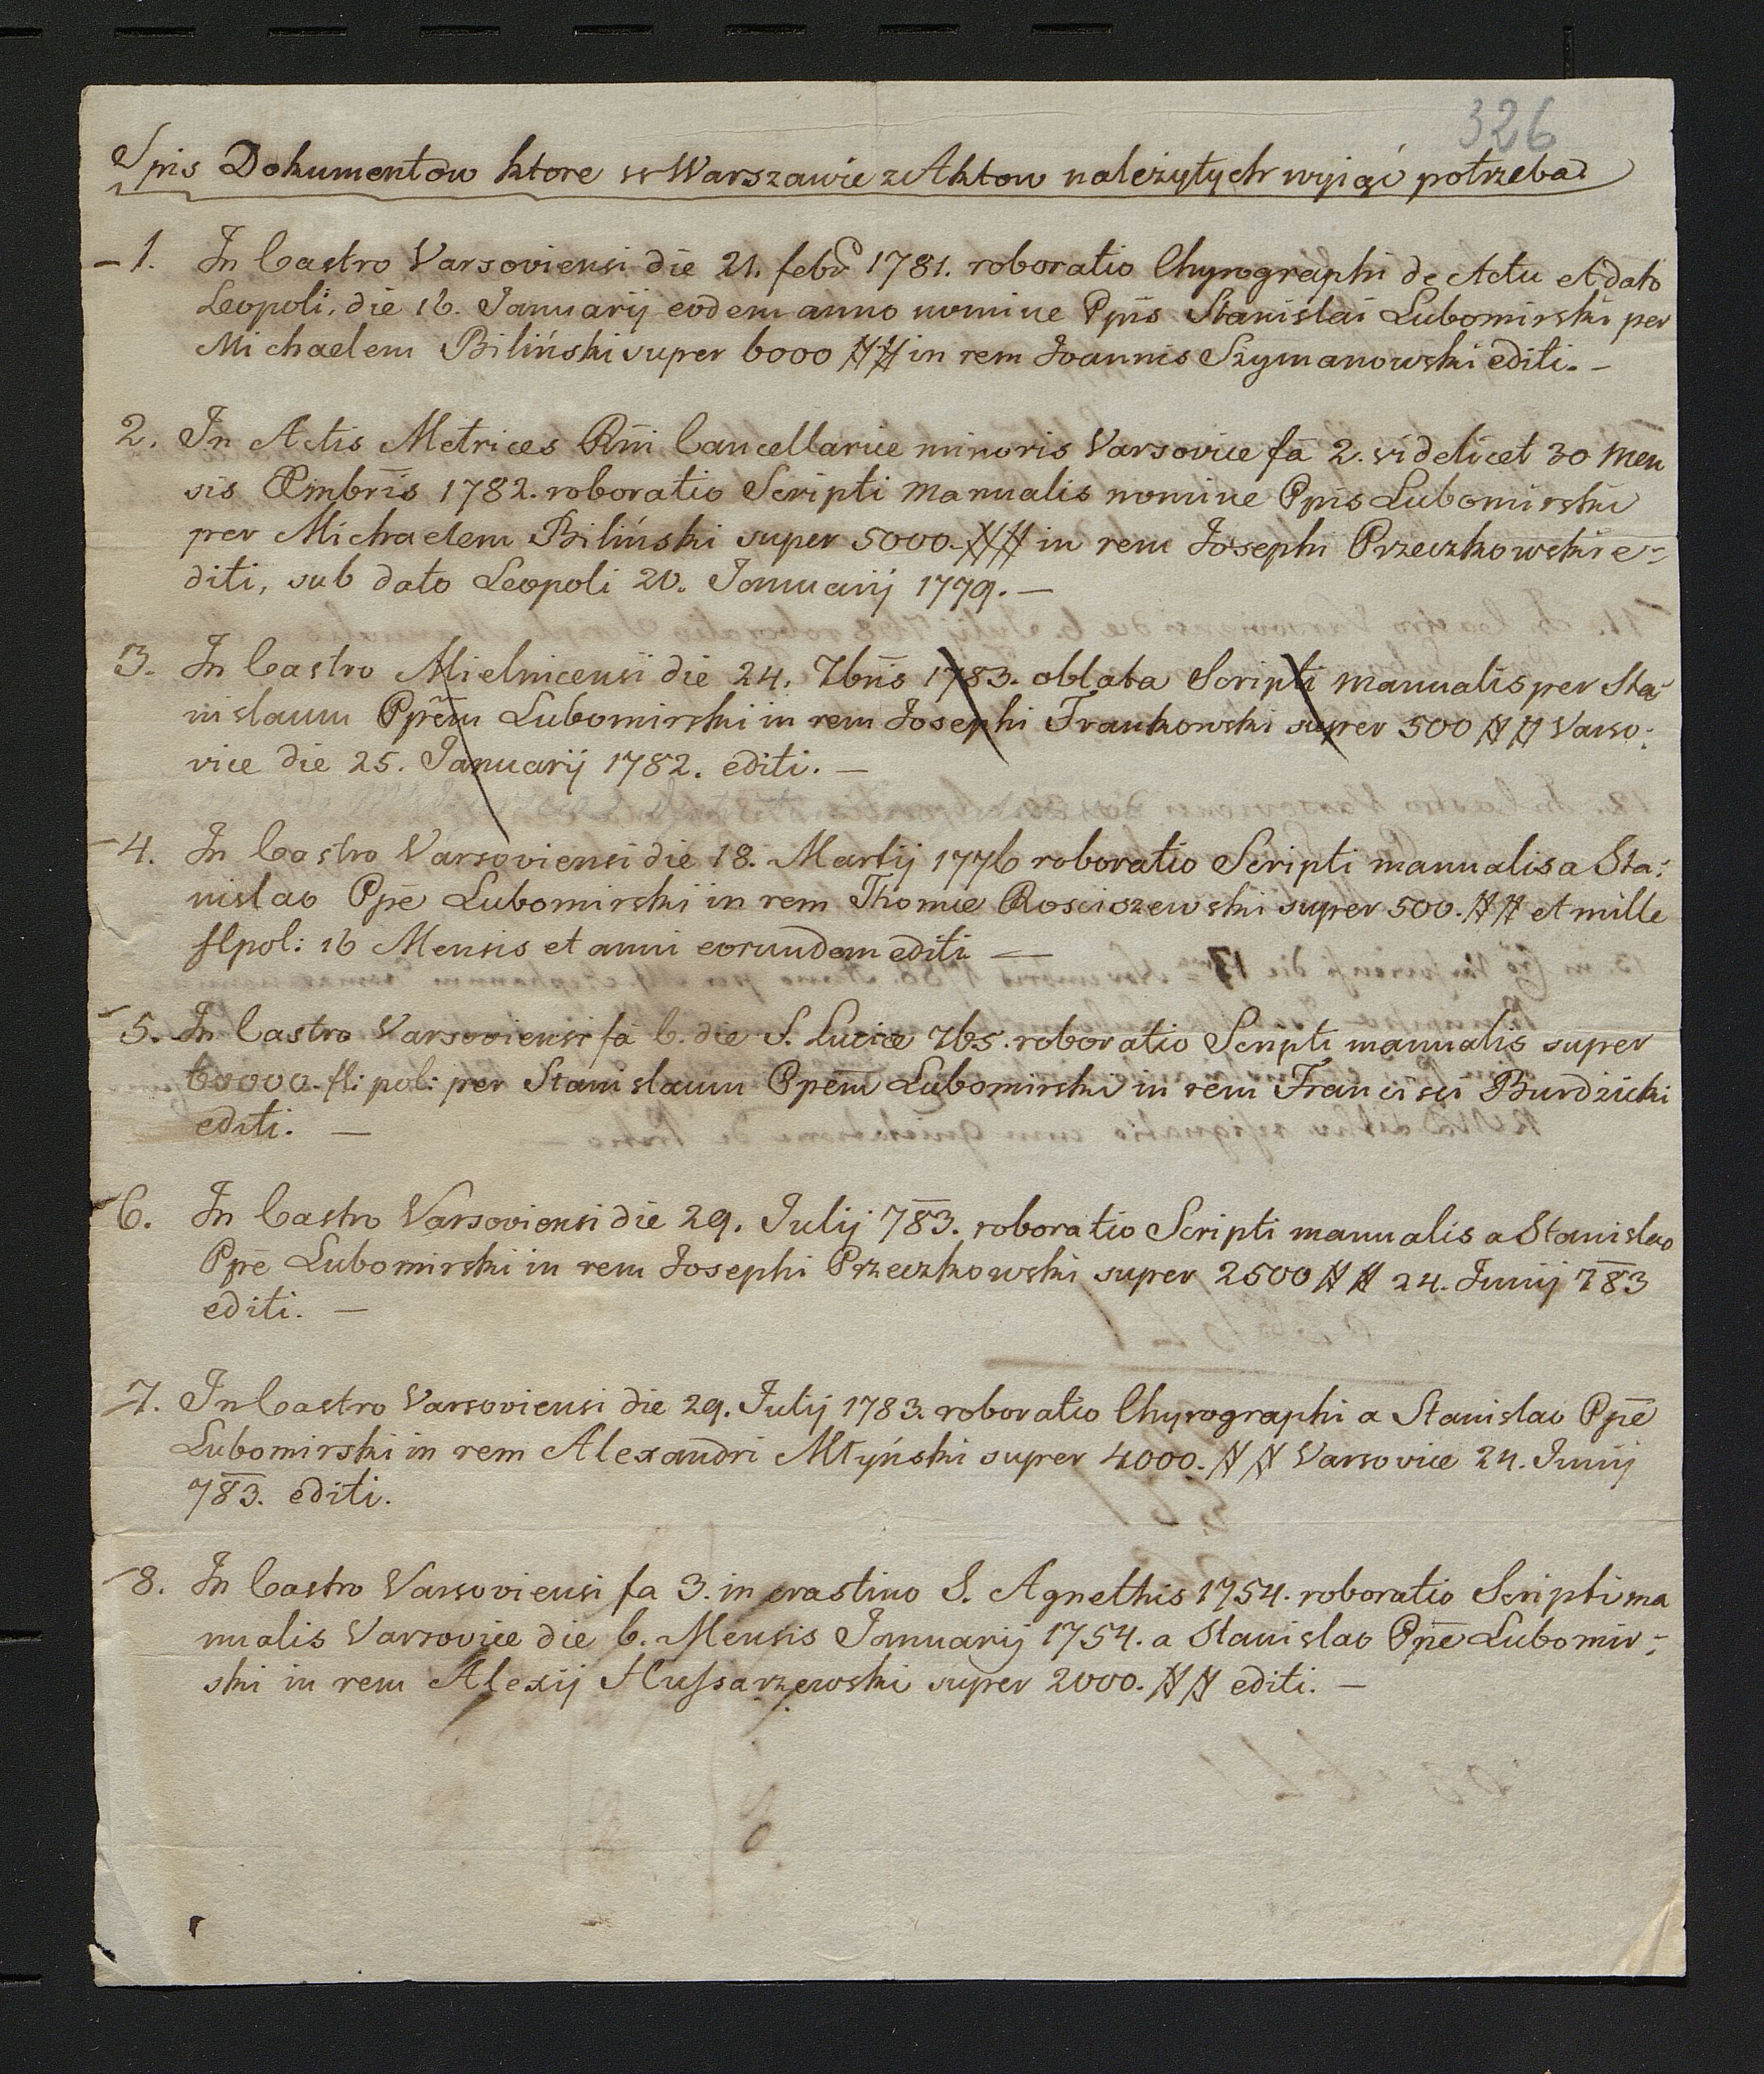 326
Spis Dokumentow ktore w Warszawie z Aktow należytych wyiąć potrzeba.
1. In Castro Varsoviensi die 21. febr 1781. roboratio Chyrographi de Actu et dato
Leopoli, die 16. Januarij eodem anno nomine Ppis Stanislai Lubomirski per
Michaelem Biliński super 6000 ## in rem Joannis Szymanowski editi. —
2. In Actis Metrices Rni Cancellariæ minoris Varsoviæ fa 2. videlicet 30 Men
sis Xmbris 1782. roboratio Scripti manualis nomine Ppis Lubomirski
per Michaelem Biliński super 5000. ## in rem Josephi Przeczkowski e-
diti, sub dato Leopoli 20. Januarij 1779. —
3. In Castro Mielnicensi die 24. 7bris 1783. oblata Scripti manualis per Sta-
nislaum Ppem Lubomirski in rem Josephi Trankowski super 500 ## Varso-
viæ die 25. Januarij 1782. editi. —
4. In Castro Varsoviensi die 18. Martij 1776 roboratio Scripti manualis a Sta-
nislao Ppe Lubomirski in rem Thomæ Rosciszewski super 500. ## et mille
flpol: 16 Mensis et anni eorundem editi —
5. In Castro Varsoviensi fa 6. die S. Luciæ 765. roboratio Scripti manualis super
60000. fl: pol: per Stanislaum Ppem Lubomirski in rem Francisci Burdzicki
editi. —
6. In Castro Varsoviensi die 29. Julij 783. roboratio Scripti manualis a Stanislao
Ppe Lubomirski in rem Josephi Przeczkowski super 2500 ## 24. Junij 783
editi. —
7. In Castro Varsoviensi die 29. Julij 1783. roboratio Chyrographi a Stanislao Ppe
Lubomirski in rem Alexandri Młyński super 4000. ## Varsoviæ 24. Junij
783. editi.
8. In Castro Varsoviensi fa 3. in crastino S. Agnethis 1754. roboratio Scripti ma
nualis Varsoviæ die 6. Mensis Januarij 1754. a Stanislao Ppe Lubomir-
ski in rem Alexij Hussarzewski super 2000. ## editi. —